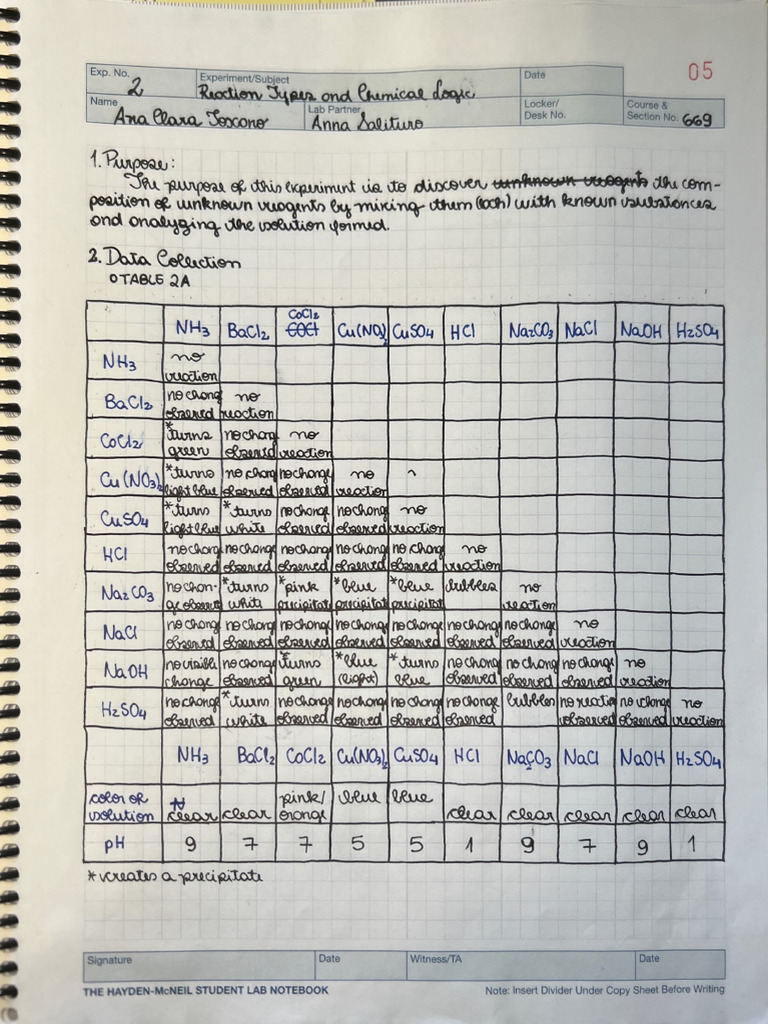 05
Exp. No. 2 Experiment/Subject Reaction Types and Chemical Logic Date
Name Ana Clara Toscano Lab Partner Anna Salituro Locker/ Desk No. Course & Section No. 669
1. Purpose:
The purpose of this experiment is to discover unknown reagents the com-
position of unknown reagents by mixing them (each) with known substances
and analyzing the solution formed.
2. Data Collection
○ TABLE 2A
NH3 BaCl2 CoCl2 Cu(NO3)2 CuSO4 HCl Na2CO3 NaCl NaOH H2SO4
NH3 no reaction
BaCl2 no chang observed no reaction
CoCl2 *turns green no chang observed no reaction
Cu(NO3)2 *turns light blue no chang observed no change observed no reaction
CuSO4 *turns light blue *turns white no change observed no change observed no reaction
HCl no chang observed no change observed no change observed no change observed no chang observed no reaction
Na2CO3 no chan-ge observed *turns white *pink precipitat *blue precipitat *blue precipitat bubbles no reaction
NaCl no chang observed no chang observed no change observed no change observed no change observed no change observed no chang observed no reaction
NaOH no visible change no chang observed *turns green *blue (light) *turns blue no chang observed no chang observed no change observed no reaction
H2SO4 no change observed *turn white no change observed no change observed no change observed no change observed bubbles no reactio observed no change observed no reaction
NH3 BaCl2 CoCl2 Cu(NO3)2 CuSO4 HCl Na2CO3 NaCl NaOH H2SO4
color of solution clear clear pink/ orange blue blue clear clear clear clear clear
pH 9 7 7 5 5 1 9 7 9 1
*creates a precipitate
Signature Date Witness/TA Date
THE HAYDEN-McNEIL STUDENT LAB NOTEBOOK Note: Insert Divider Under Copy Sheet Before Writing